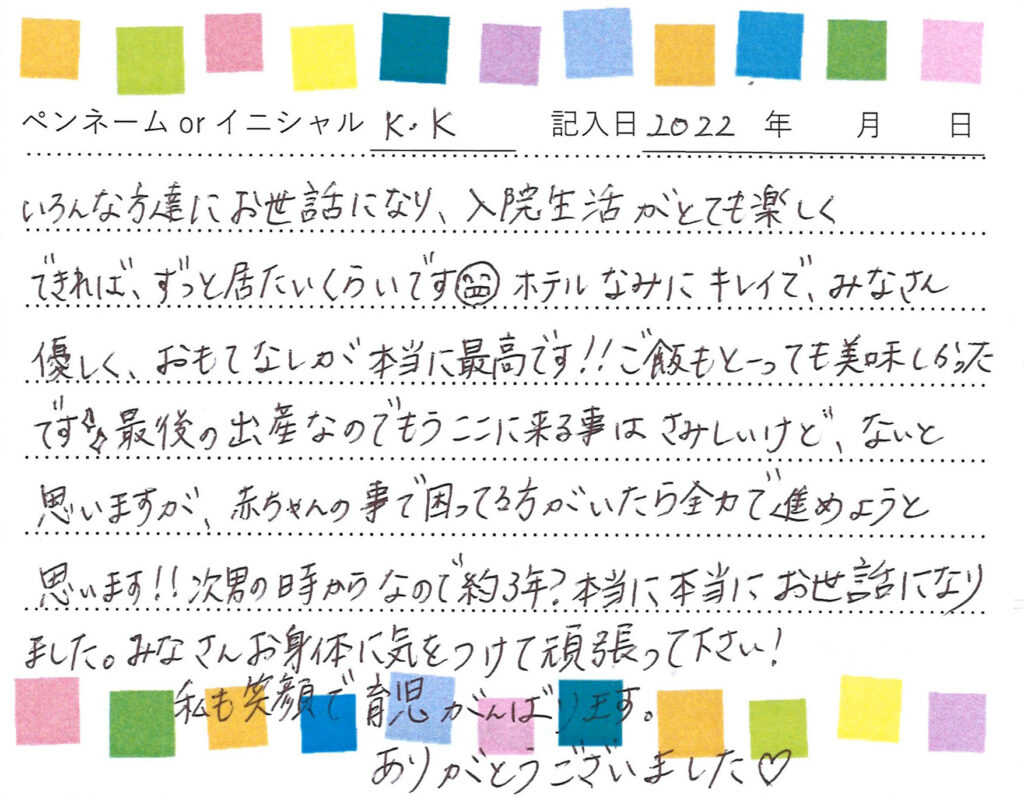 ペンネーム or イニシャル K.K 記入日 2022 年 月 日
いろんな方達にお世話になり、入院生活がとても楽しく
できれば、ずっと居たいくらいです ホテルなみにキレイで、みなさん
優しく、おもてなしが本当に最高です!!ご飯もとーっても美味しかった
です♪最後の出産なのでもうここに来る事はさみしいけど、ないと
思いますが、赤ちゃんの事で困ってる方がいたら全力で進めようと
思います!!次男の時からなので約3年?本当に本当にお世話になり
ました。みなさんお身体に気をつけて頑張って下さい!
私も笑顔で育児がんばります。
ありがとうございました♡